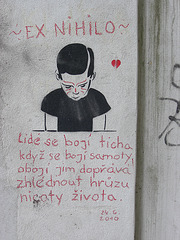 ~EX NIHILO~
Lidé se bojí ticha,
když se bojí samoty,
obojí jim dopřává
zhlédnout hrůzu
nicoty života.
24.6.
2010